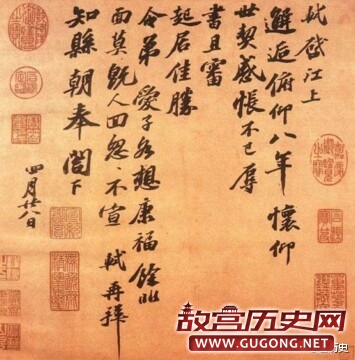 軾啟江上
邂逅俯仰八年懷仰
世契感悵不已辱
書且審
起居佳勝
令弟愛子各想康福餘非
面莫既人回怱〻不宣 軾再拜
知縣朝奉閣下
四月廿八日
故宫历史网
www.GUGONG.net